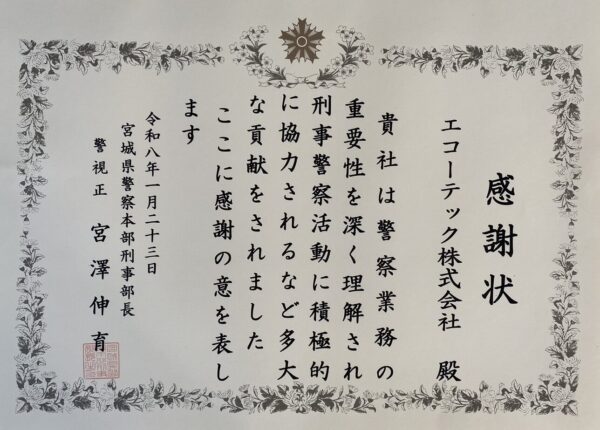 感謝状
エコーテック株式会社 殿
貴社は警察業務の
重要性を深く理解され
刑事警察活動に積極的
に協力されるなど多大
な貢献をされました
ここに感謝の意を表し
ます
令和八年一月二十三日
宮城県警察本部刑事部長
警視正 宮澤伸育